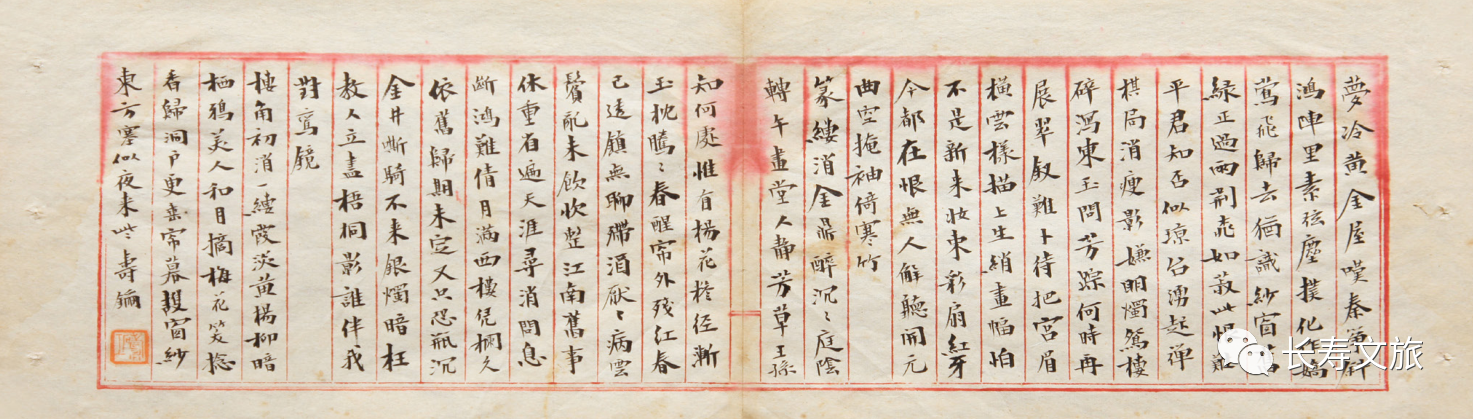 夢冷黄金屋嘆秦筝斜
鴻陣里素弦塵撲化作嬌
莺飛歸去猶識紗窗舊
緑正過雨荆桃如菽此恨難
平君知否似瓊台湧起弹
棋局消瘦影嫌明燭鴛樓
碎瀉東玉問芳踪何時再
展翠釵難卜待把宫眉
横雲樣描上生綃畫幅怕
不是新来妝束彩扇紅牙
今都在恨無人解聽開元
曲空掩袖倚寒竹
篆縷消金鼎醉沉〻庭陰
轉午畫堂人静芳草王孫
知何處惟有楊花糁径漸
玉枕騰〻春醒帘外残紅春
已透鎮無聊殢酒厭〻病雲
鬢乱未飲忺整江南舊事
休重省遍天涯尋消問息
断鴻難倩月满西樓凭欄久
依舊歸期未定又只恐瓶沉
金井嘶騎不来銀燭暗枉
教人立盡梧桐影誰伴我
對鸾镜
樓角初消一縷霞淡黄楊柳暗
栖鴉美人和月摘梅花笑捻
香歸洞户更垂帘幕護窗紗
東方寒似夜来些 壽镛
长寿文旅